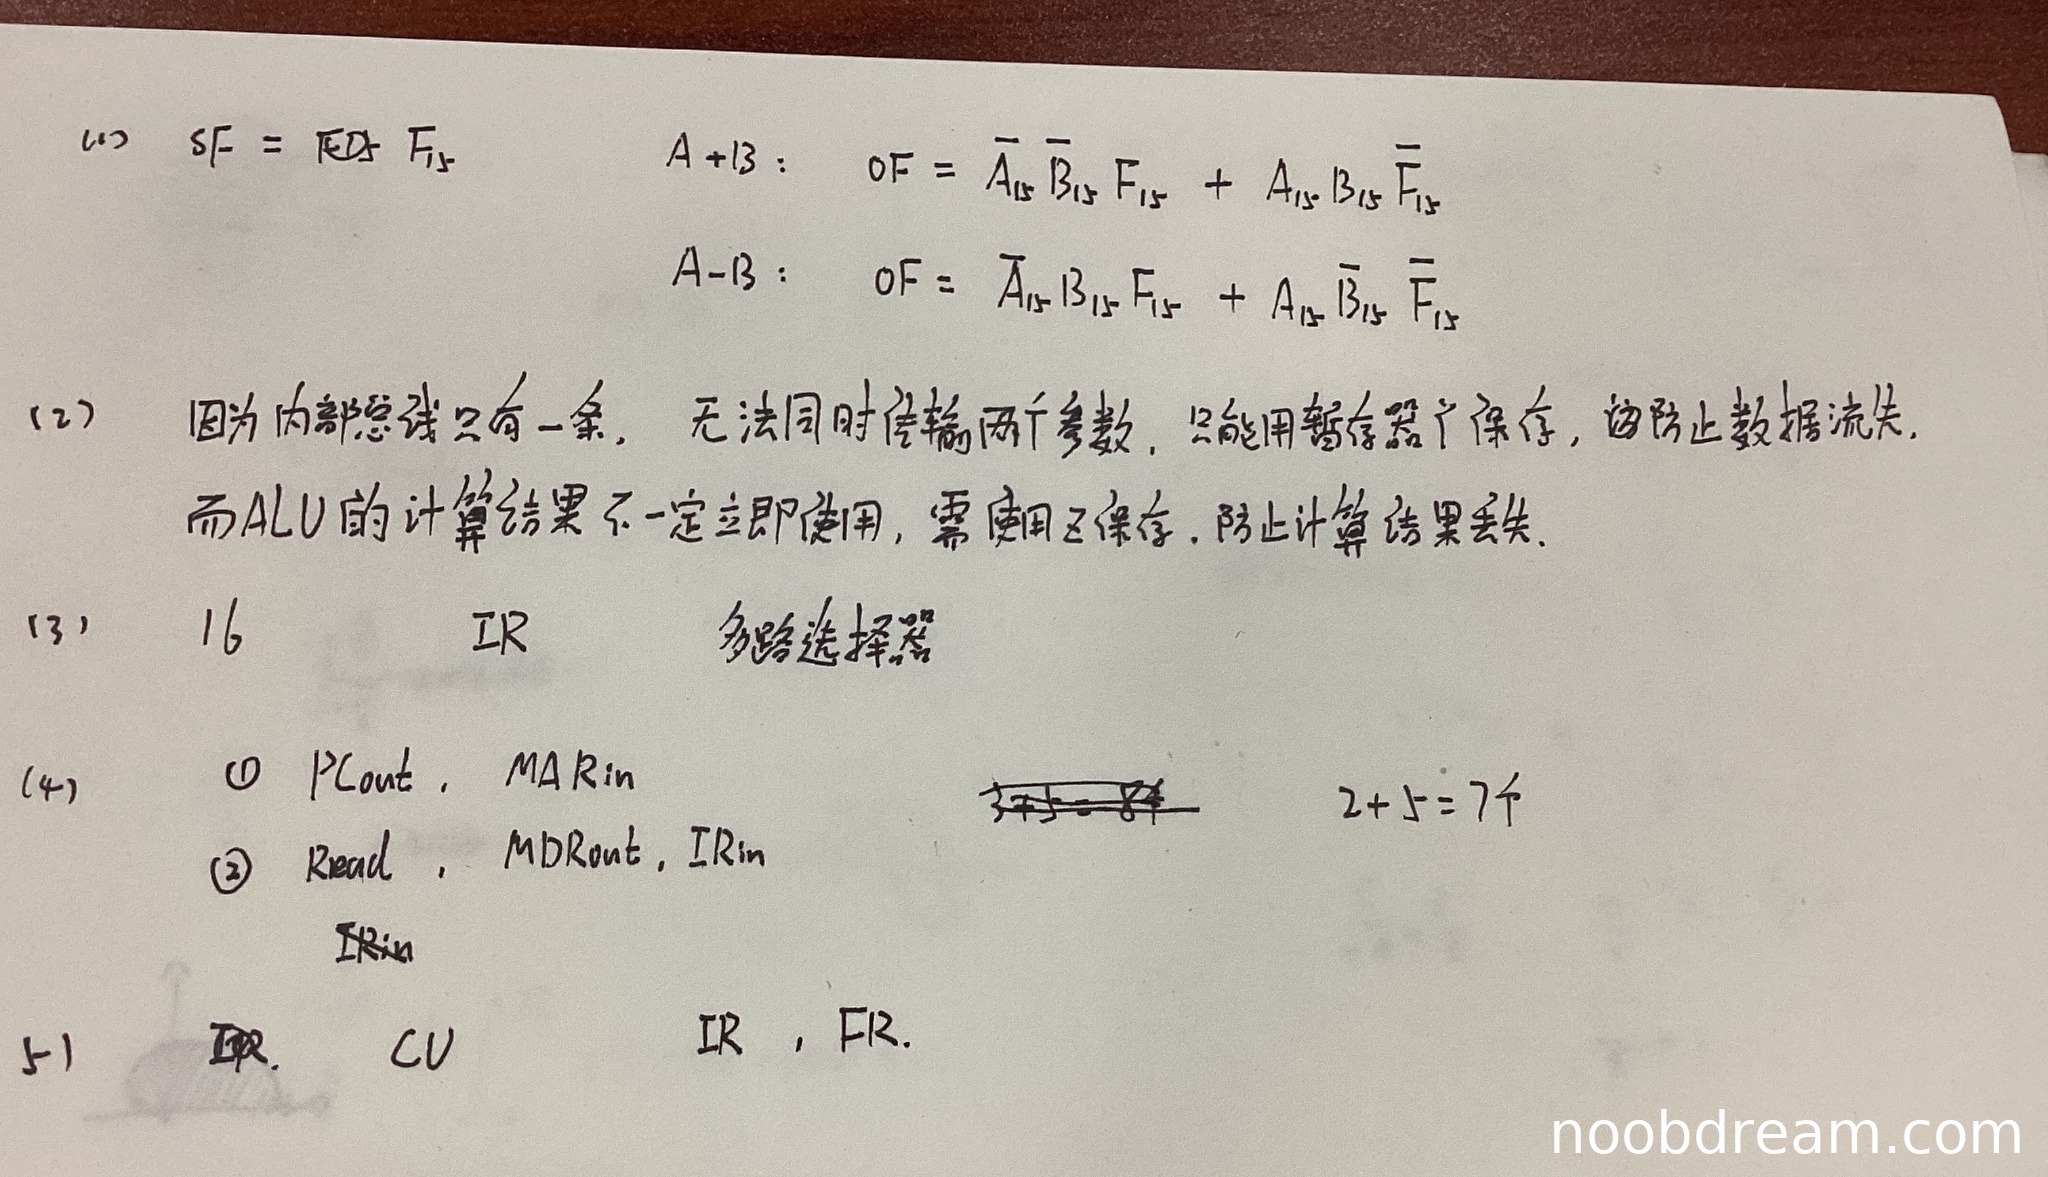 (1) SF = F₁₅ A+B: OF = A̅₁₅ B̅₁₅ F₁₅ + A₁₅ B₁₅ F̅₁₅
A-B: OF = A̅₁₅ B₁₅ F₁₅ + A₁₅ B̅₁₅ F̅₁₅
(2) 因为内部总线只有一条, 无法同时传输两个参数, 只能用暂存器保存, 防止数据流失.
而ALU的计算结果不一定立即使用, 需使用Z保存. 防止计算结果丢失.
(3) 16 IR 多路选择器
(4) ① PCout, MARin 2+5=7个
② Read, MDRout, IRin
IRin
5) CU IR, FR.
noobdream.com